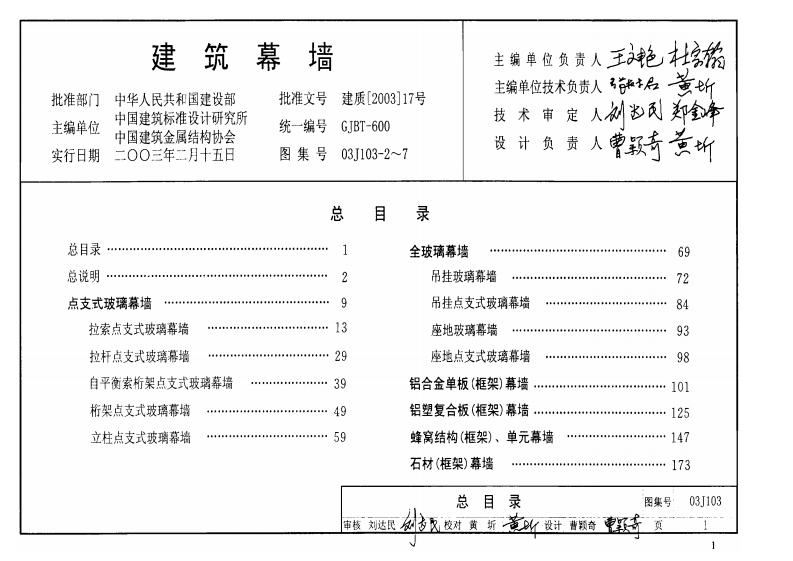 建筑幕墙
批准部门 中华人民共和国建设部 批准文号 建质[2003]17号
主编单位 中国建筑标准设计研究所 中国建筑金属结构协会 统一编号 GJBT-600
实行日期 二〇〇三年二月十五日 图集号 03J103-2~7
主编单位负责人
主编单位技术负责人 黄圻
技术审定人
设计负责人 曹颖奇 黄圻
总目录
总目录 1
总说明 2
点支式玻璃幕墙 9
拉索点支式玻璃幕墙 13
拉杆点支式玻璃幕墙 29
自平衡索桁架点支式玻璃幕墙 39
桁架点支式玻璃幕墙 49
立柱点支式玻璃幕墙 59
全玻璃幕墙 69
吊挂玻璃幕墙 72
吊挂点支式玻璃幕墙 84
座地玻璃幕墙 93
座地点支式玻璃幕墙 98
铝合金单板(框架)幕墙 101
铝塑复合板(框架)幕墙 125
蜂窝结构(框架)、单元幕墙 147
石材(框架)幕墙 173
总目录 图集号 03J103
审核 刘达民 校对 黄圻 黄圻 设计 曹颖奇 曹颖奇 页 1
1